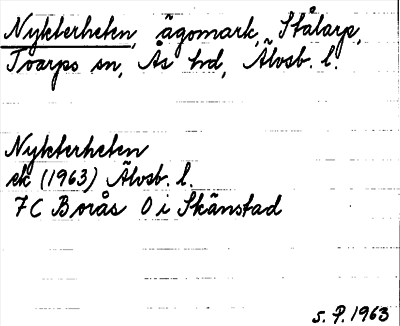 Nykterheten, ägomark, Stålarp,
Toarps sn, Ås hd, Älvsb. l.
Nykterheten
ek (1963) Älvsb. l.
7C Borås O i Skänstad
s. P. 1963